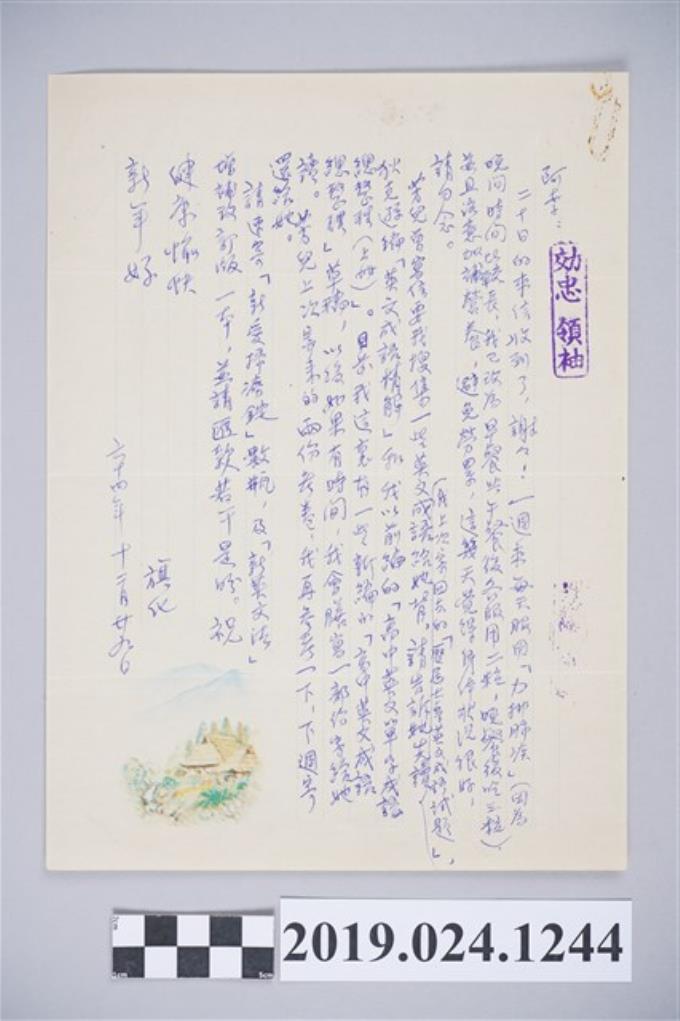 阿李:
二十日的來信收到了，謝々！一週來每天服用「力排肺疾」(因為
晚間時間比較長，我已改為早餐與午餐後各服用二粒，晚餐後吃三粒)，
並且注意加強營養，避免勞累，這幾天覺得身体狀況很好，
請勿念。
芳兒曾寫信要我搜集一些英文成語給她背，請告訴她先讀
(我上次寄回去的「歷屆大專英文成語試題」)，
狄克遜編「英文成語精解」和我以前編的「高中英文單字成語
總整理(上冊)」。目前我這裏有一些新編的「高中英文成語
總整理」草稿，以後如果有時間，我會謄寫一部份寄給她
讀。芳兒上次寄來的兩份考卷，我再參考一下，下週寄
還給她。
請速寄「新愛擇濟錠」數瓶，及「新英文法」
增補改訂版一本，並請匯款若干是盼。祝
健康愉快
新年好
旗化
六十四年十二月廿九日
効忠領袖
2019.024.1244